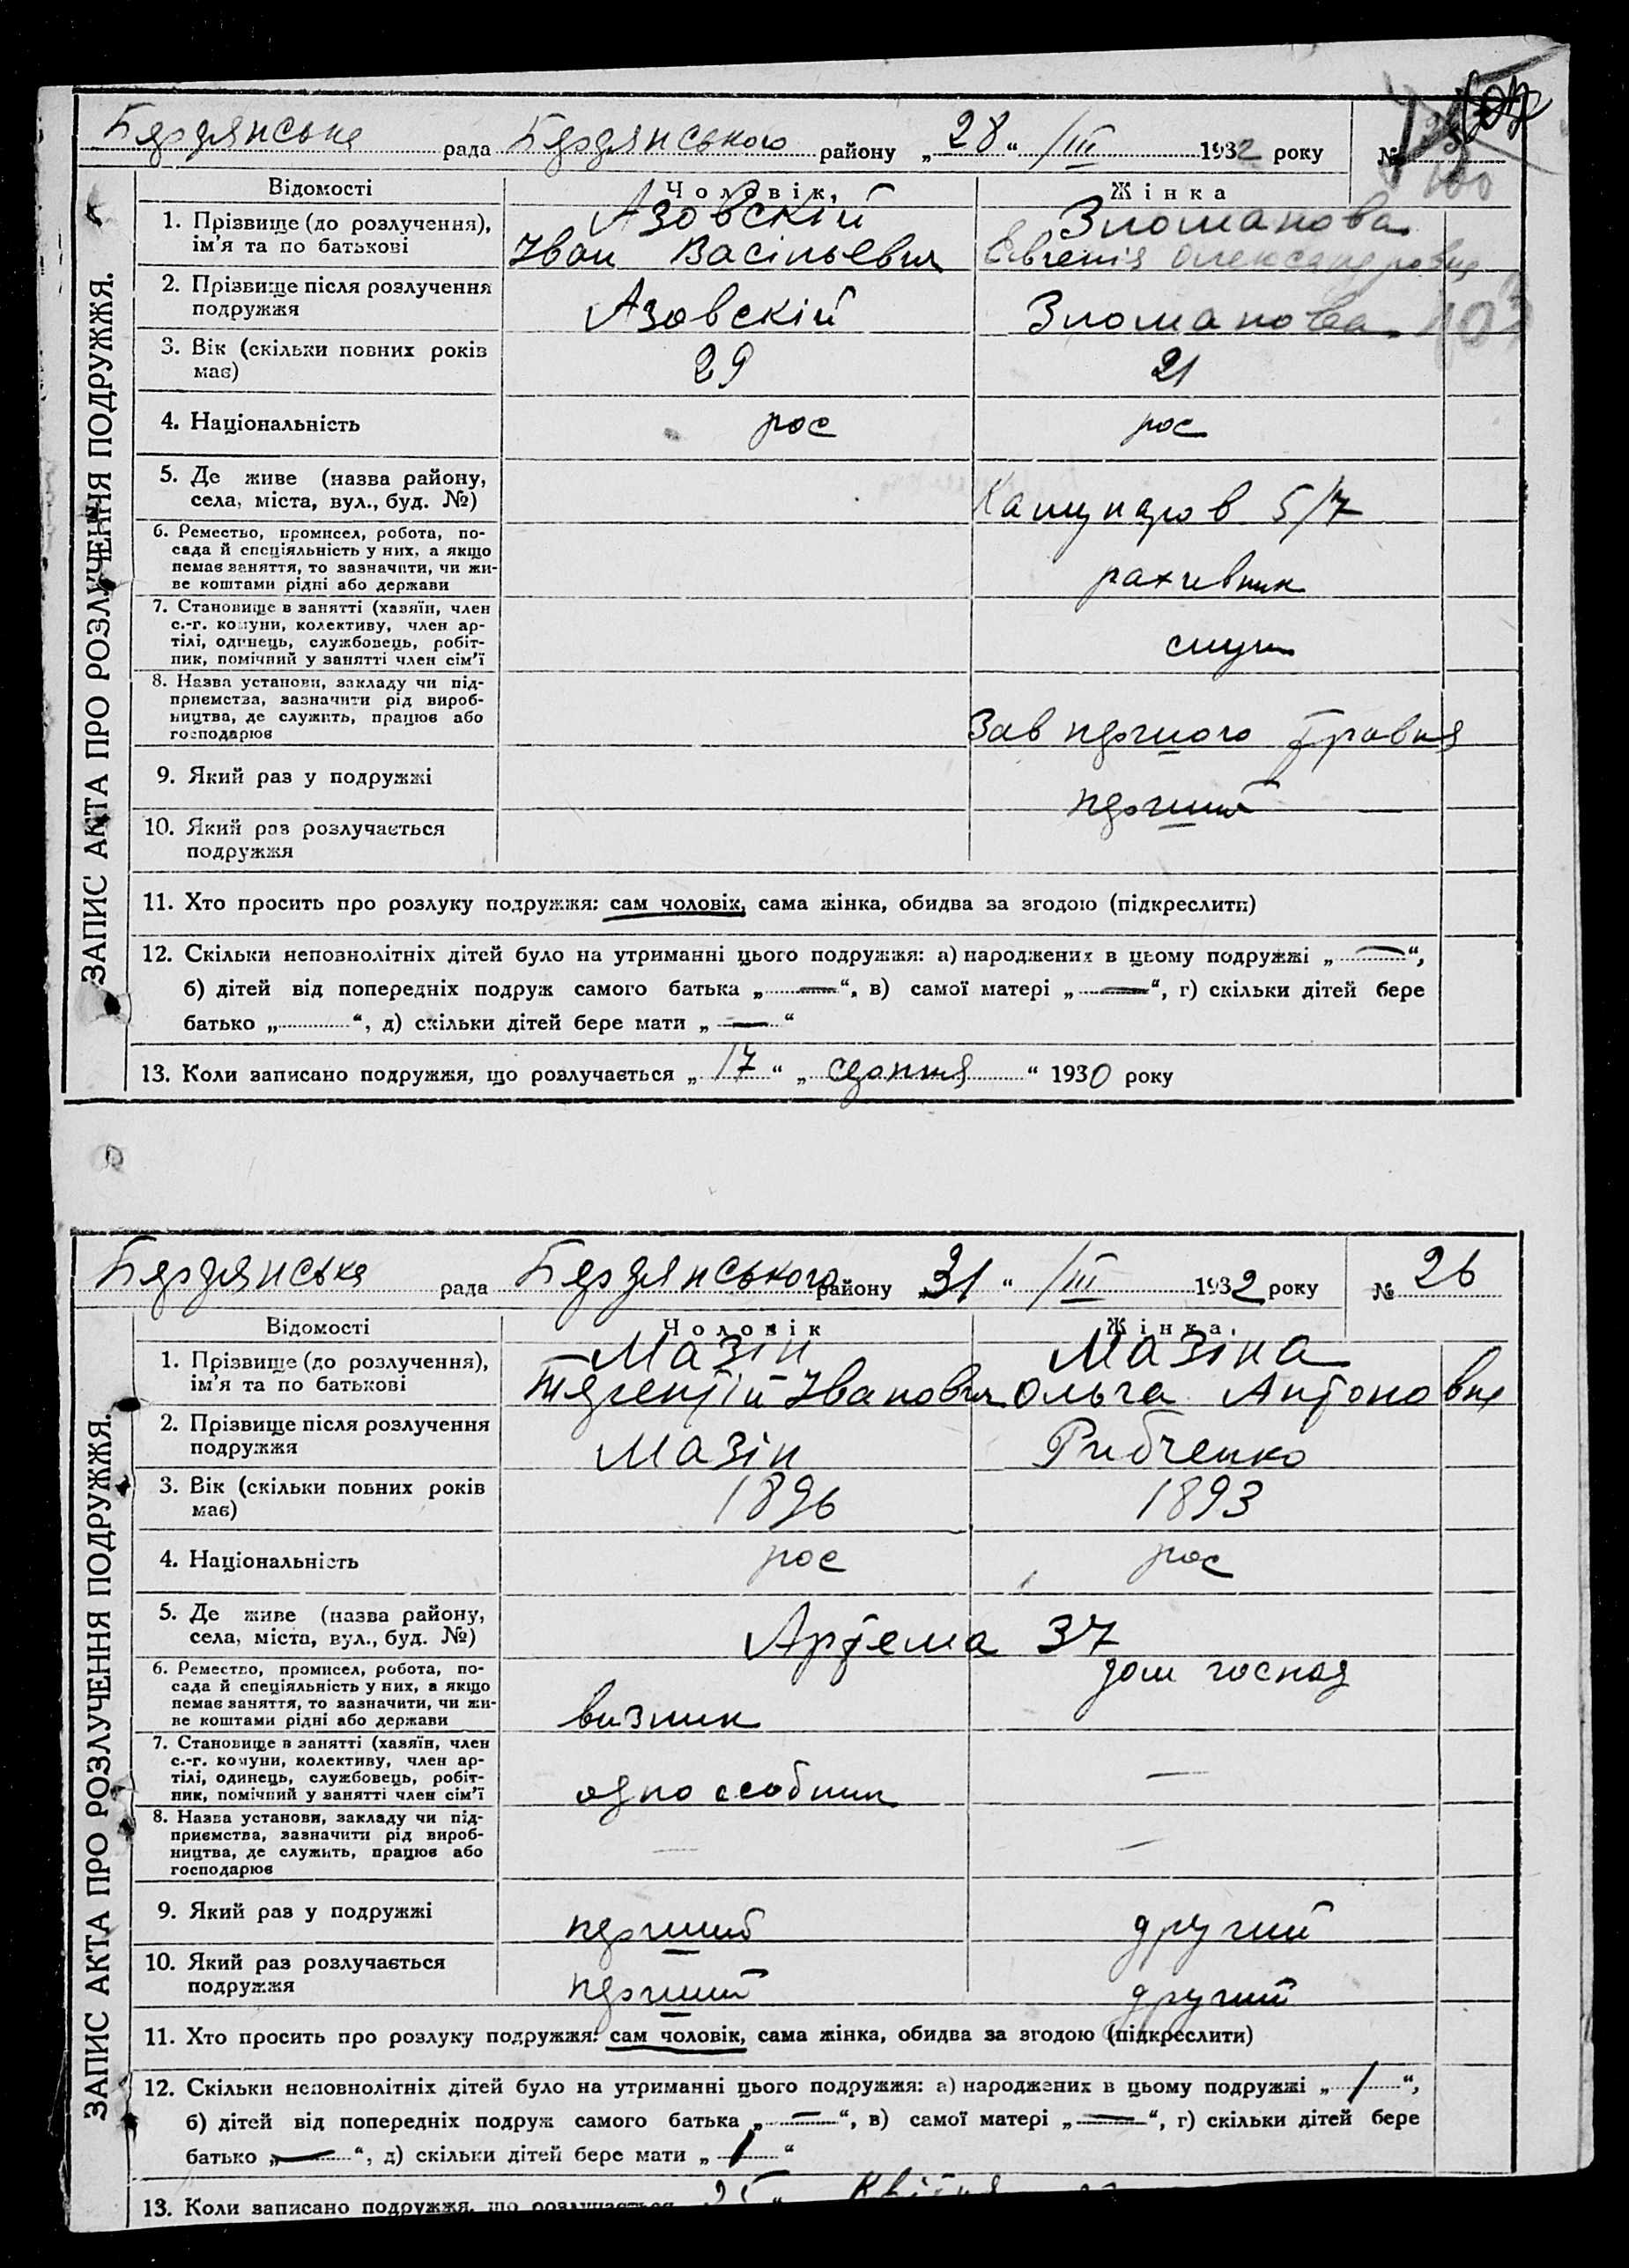 ЗАПИС АКТА ПРО РОЗЛУЧЕННЯ ПОДРУЖЖЯ.
Бердянська рада Бердянського району „28“ /III 1932 року №
Відомості Чоловік, Жінка
1. Прізвище (до розлучення), ім'я та по батькові
Азовскій
Іван Васільевич
Зломанова
Євгенія Олександровна
2. Прізвище після розлучення подружжя
Азовскій Зломанова
3. Вік (скільки повних років має)
29 21
4. Національність рос рос
5. Де живе (назва району, села, міста, вул., буд. №)
5/7
6. Ремество, промисел, робота, по-
сада й спеціяльність у них, а якщо
немає заняття, то зазначити, чи жи-
ве коштами рідні або держави
рахивник
7. Становище в занятті (хазяїн, член
с.-г. комуни, колективу, член ар-
тілі, одинець, службовець, робіт-
ник, помічний у занятті член сім'ї
служ
8. Назва установи, закладу чи під-
приємства, зазначити рід вироб-
ництва, де служить, працює або
господарює
Зав першого Травня
9. Який раз у подружжі
перший
10. Який раз розлучається
подружжя
11. Хто просить про розлуку подружжя: сам чоловік, сама жінка, обидва за згодою (підкреслити)
12. Скільки неповнолітніх дітей було на утриманні цього подружжя: а) народжених в цьому подружжі „—“,
б) дітей від попередніх подруж самого батька „—“, в) самої матері „—“, г) скільки дітей бере
батько „ “, д) скільки дітей бере мати „—“
13. Коли записано подружжя, що розлучається „17“ „серпня“ 1930 року
ЗАПИС АКТА ПРО РОЗЛУЧЕННЯ ПОДРУЖЖЯ.
Бердянська рада Бердянського району „31“ /III 1932 року № 26
Відомості Чоловік Жінка.
1. Прізвище (до розлучення),
ім'я та по батькові
Мазін
Терентій Іванович
Мазіна
Ольга Антоновна
2. Прізвище після розлучення
подружжя
Мазін Рибченко
3. Вік (скільки повних років
має)
1896 1893
4. Національність рос рос
5. Де живе (назва району,
села, міста, вул., буд. №)
Артема 37
6. Ремество, промисел, робота, по-
сада й спеціяльність у них, а якщо
немає заняття, то зазначити, чи жи-
ве коштами рідні або держави
визник дом господ
7. Становище в занятті (хазяїн, член
с.-г. комуни, колективу, член ар-
тілі, одинець, службовець, робіт-
ник, помічний у занятті член сім'ї
одноособник —
8. Назва установи, закладу чи під-
приємства, зазначити рід вироб-
ництва, де служить, працює або
господарює
— —
9. Який раз у подружжі
перший другий
10. Який раз розлучається
подружжя
перший другий
11. Хто просить про розлуку подружжя: сам чоловік, сама жінка, обидва за згодою (підкреслити)
12. Скільки неповнолітніх дітей було на утриманні цього подружжя: а) народжених в цьому подружжі „1“,
б) дітей від попередніх подруж самого батька „—“, в) самої матері „—“, г) скільки дітей бере
батько „—“, д) скільки дітей бере мати „1“
13. Коли записано подружжя, що розлучається 25 “ Квітня